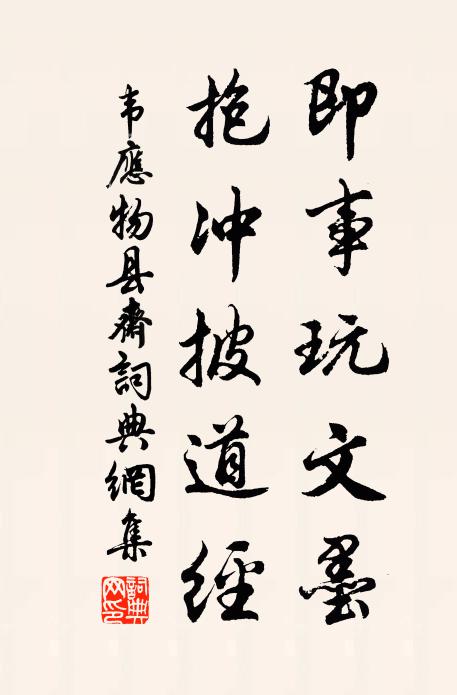 即事玩文墨
抱冲披道經
韦應物县齋詞典網集
詞典网印